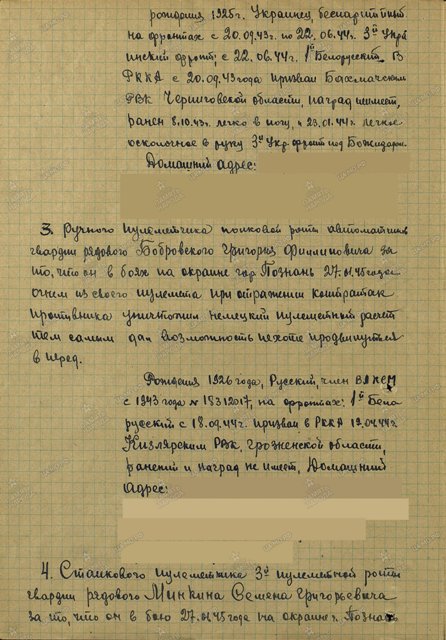 рождения 1925г. Украинец, беспартийный
на фронтах с 20.09.43г. по 22.06.44г. 3й Укра
инский фронт, с 22.06.44г. 1й Белорусский. В
РККА с 20.09.43 года призван Бахмачским
РВК Черниговской области, наград не имеет,
ранен 8.10.43г. легко в ногу, и 23.01.44г. легкое
осколочное в руку 3й Укр. фронт под
Домашний адрес:
3. Ручного пулеметчика полковой роты автоматчиков
гвардии рядового Бобровского Григорья Филлиповича за
то, что он в боях на окраине гор. Познань 27.01.45 года
огнем из своего пулемета при отражении контратак
противника уничтожил немецкий пулеметный расчет
тем самым дал возможность пехоте продвинуться
в перед.
Рождения 1926 года, Русский, член ВЛКСМ
с 1943 года № 18312017, на фронтах: 1й Бело
русский с 18.09.44г. призван в РККА 12.04.44г.
Кизлярским РВК, Грозненской области,
ранений и наград не имеет, Домашний
Адрес:
4. Станкового пулеметчика 3й пулеметной роты
гвардии рядового Минкина Семена Григорьевича
за то, что он в бою 27.01.45 года на окраине г. Познань